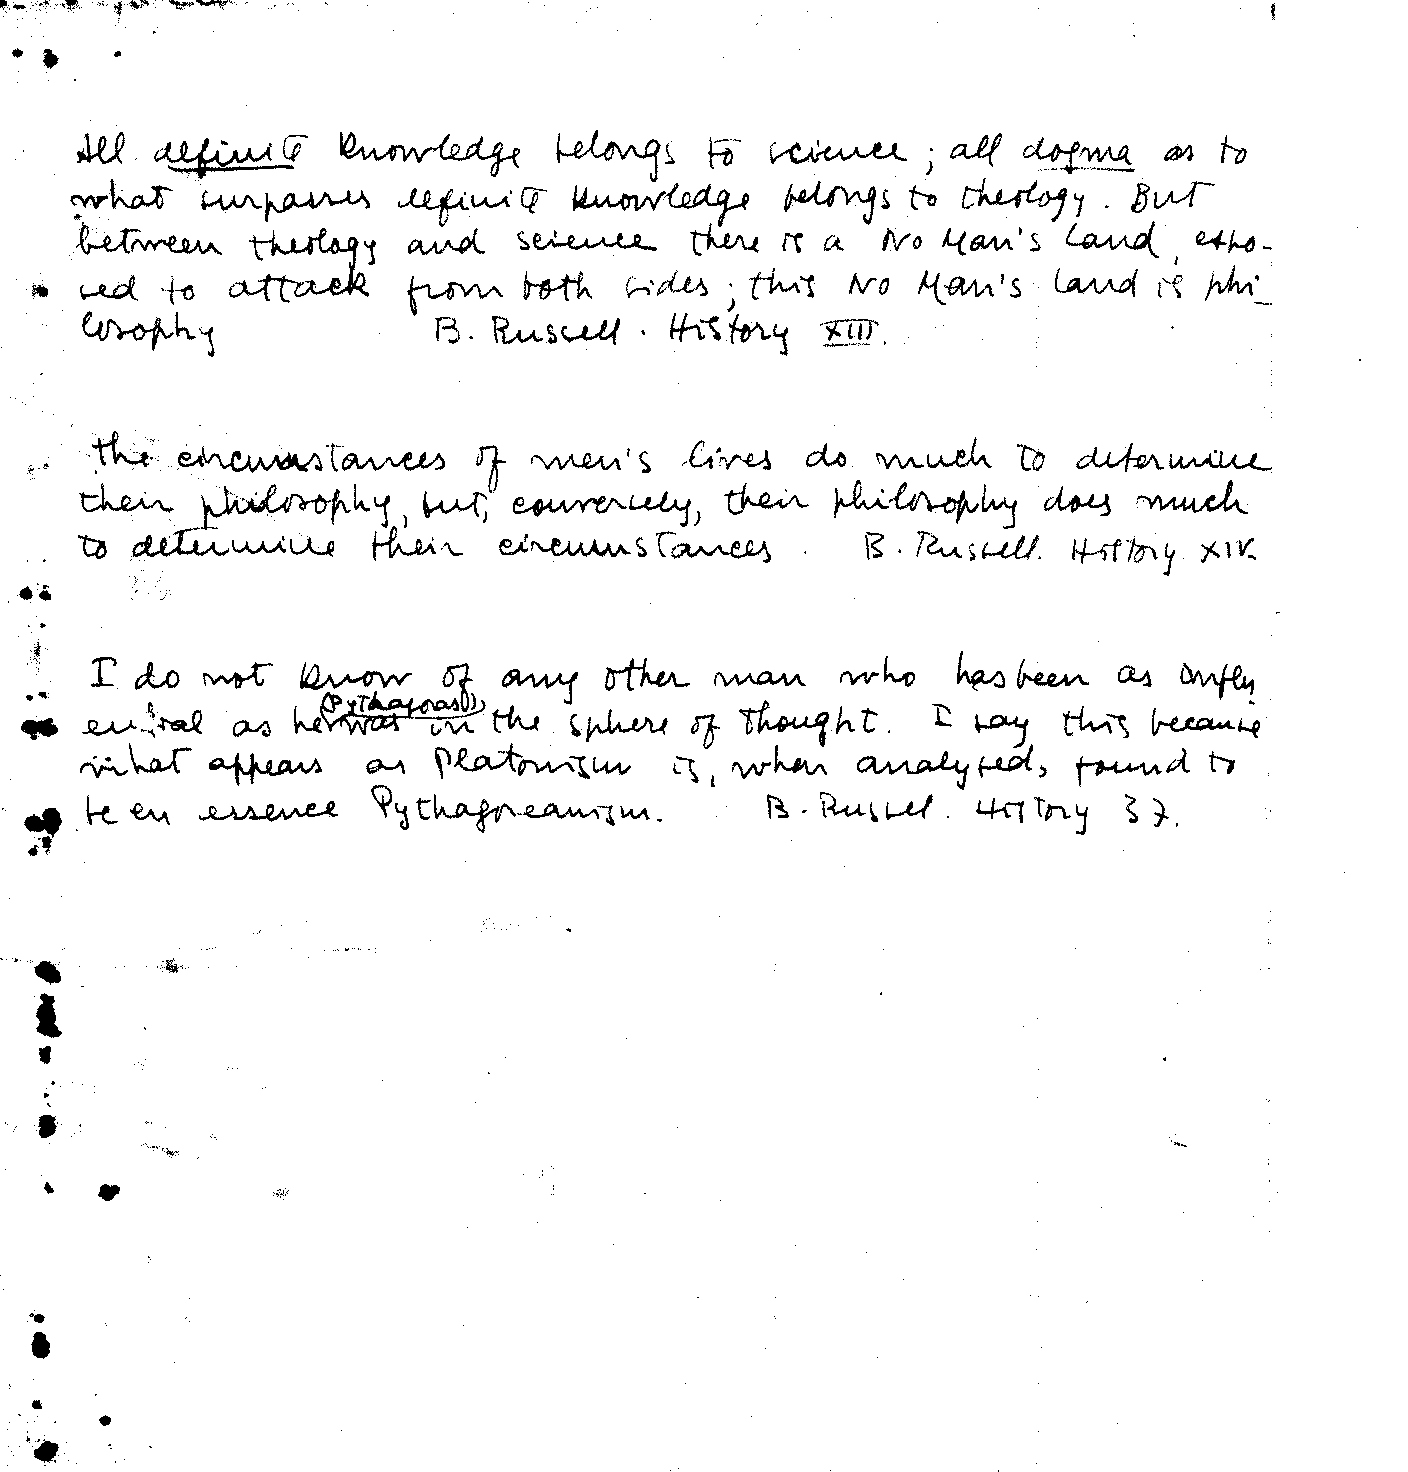 All definite knowledge belongs to science; all dogma as to
what surpasses definite knowledge belongs to theology. But
between theology and science there is a No Man's Land, expo-
sed to attack from both sides; this No Man's Land is phi-
losophy B. Russell. History XIII.
The circumstances of men's lives do much to determine
their philosophy, but, conversely, their philosophy does much
to determine their circumstances. B. Russell. History XIV.
I do not know of any other man who has been as influ
ential as he (Pythagoras) was in the sphere of thought. I say this because
what appears as Platonism is, when analysed, found to
be in essence Pythagoreanism. B. Russell. History 37.